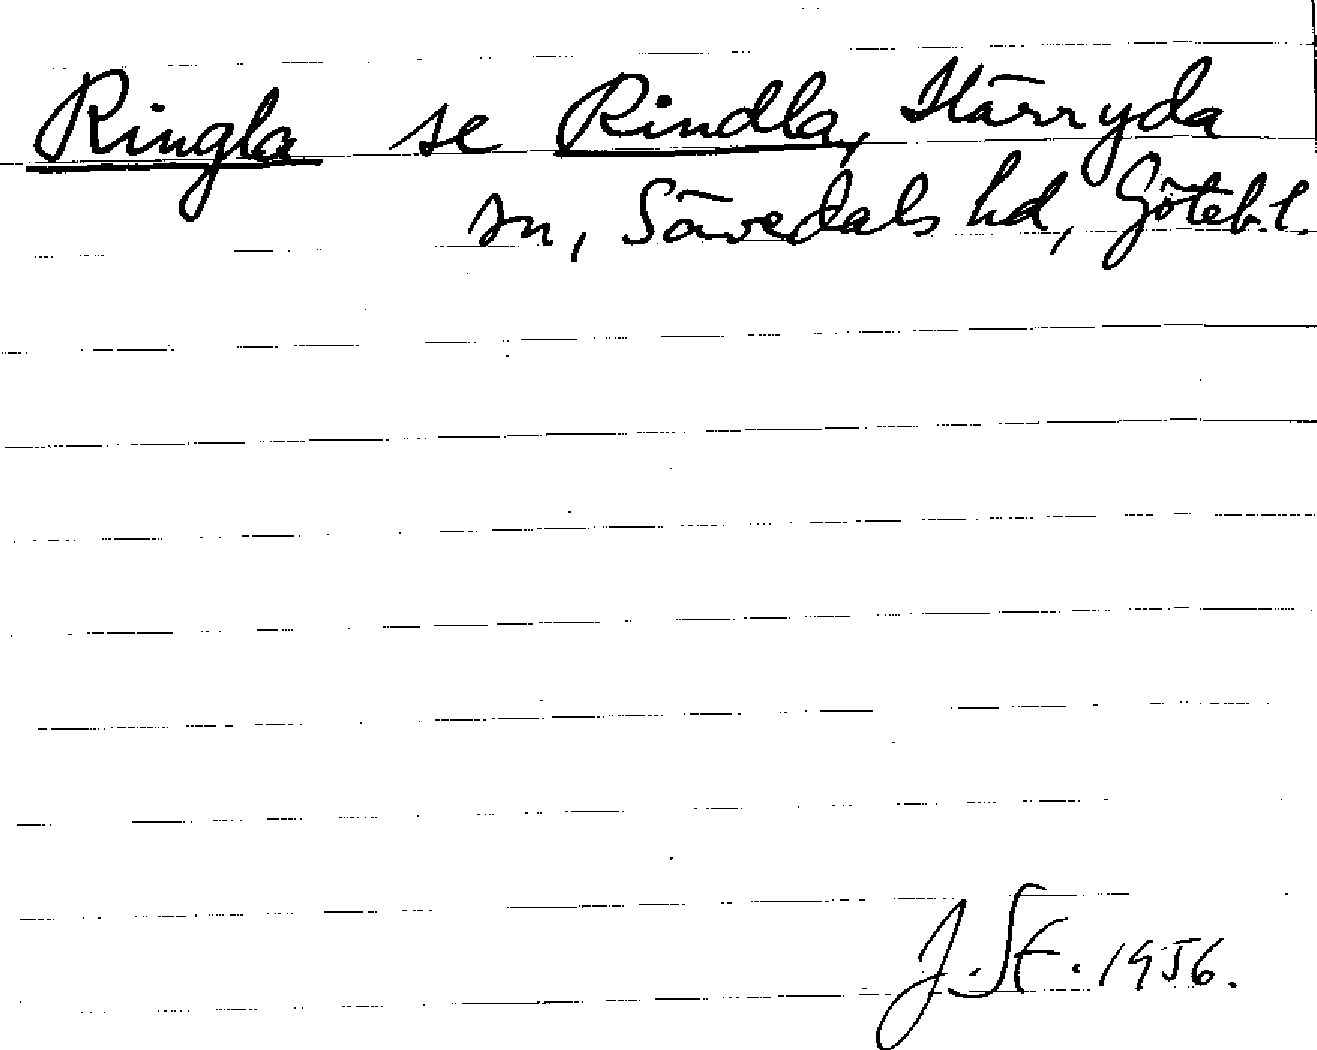 Ringla se Rindla, Härryda
sn, Sävedals hd, Göteb.l.
J.SE. 1956.